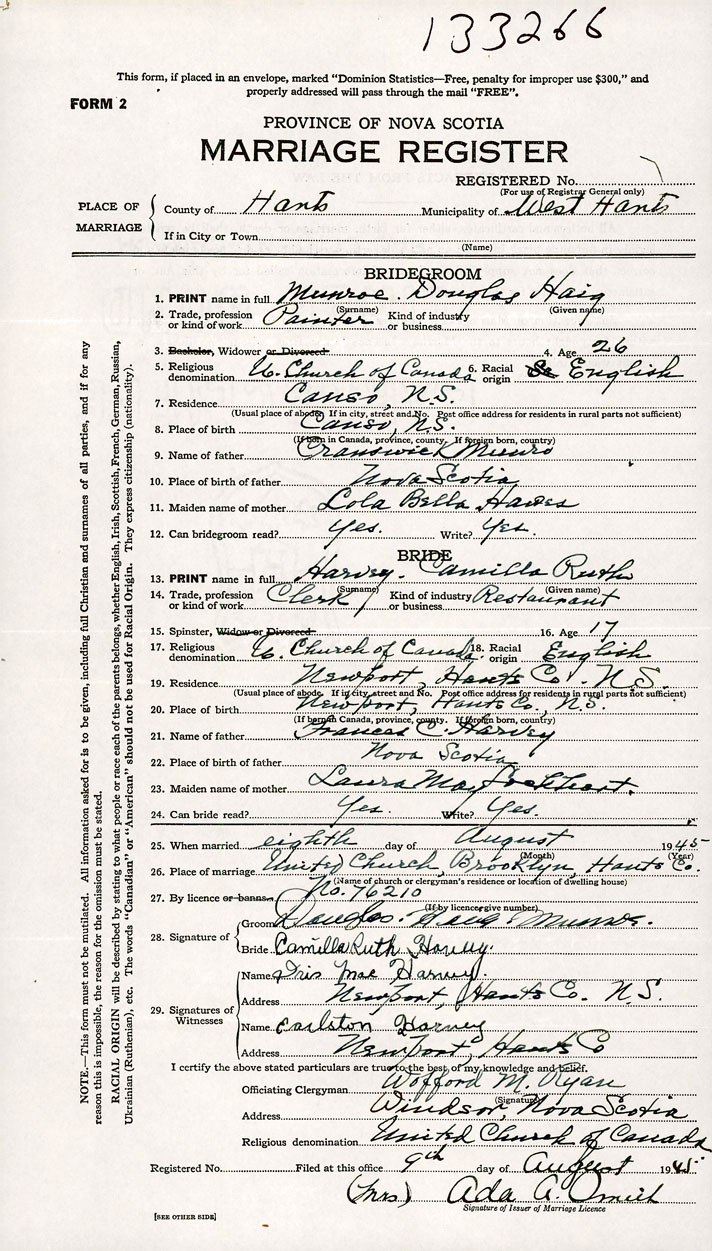 133266
This form, if placed in an envelope, marked "Dominion Statistics—Free, penalty for improper use $300," and
properly addressed will pass through the mail "FREE".
FORM 2
PROVINCE OF NOVA SCOTIA
MARRIAGE REGISTER
REGISTERED No.
(For use of Registrar General only)
PLACE OF MARRIAGE
County of Hants Municipality of West Hants
If in City or Town
(Name)
BRIDEGROOM
1. PRINT name in full Munroe. Douglas Haig
(Surname) (Given name)
2. Trade, profession or kind of work Painter Kind of industry or business
3. Bachelor, Widower or Divorced 4. Age 26
5. Religious denomination U. Church of Canada 6. Racial origin English
7. Residence Canso, N.S.
(Usual place of abode. If in city, street and No. Post office address for residents in rural parts not sufficient)
8. Place of birth Canso, N.S.
(If born in Canada, province, county. If foreign born, country)
9. Name of father Cranswick Munro
10. Place of birth of father Nova Scotia
11. Maiden name of mother Lola Bella Hawes
12. Can bridegroom read? Yes. Write? Yes.
BRIDE
13. PRINT name in full Harvey. Camilla Ruth
(Surname) (Given name)
14. Trade, profession or kind of work Clerk Kind of industry or business Restaurant
15. Spinster, Widow or Divorced 16. Age 17
17. Religious denomination U. Church of Canada. 18. Racial origin English
19. Residence Newport, Hants Co. N.S.
(Usual place of abode. If in city, street and No. Post office address for residents in rural parts not sufficient)
20. Place of birth Newport, Hants Co., N.S.
(If born in Canada, province, county. If foreign born, country)
21. Name of father Frances C. Harvey
22. Place of birth of father Nova Scotia
23. Maiden name of mother Laura May Lockhart.
24. Can bride read? Yes. Write? Yes.
25. When married eighth day of August 1945
(Month) (Year)
26. Place of marriage United Church, Brooklyn, Hants Co.
(Name of church or clergyman's residence or location of dwelling house)
27. By licence or banns No. 76210
(If by licence, give number)
28. Signature of
Groom Douglas. Haig Munroe.
Bride Camilla Ruth Harvey.
29. Signatures of Witnesses
Name Iris Mae Harvey.
Address Newport, Hants Co. N.S.
Name Carlston Harvey
Address Newport, Hants Co
I certify the above stated particulars are true to the best of my knowledge and belief.
Officiating Clergyman Wofford M. Ryan
(Signature)
Address Windsor, Nova Scotia
Religious denomination United Church of Canada
Registered No. Filed at this office 9th day of August 1945
(Mrs) Ada A. Smith
Signature of Issuer of Marriage Licence
[SEE OTHER SIDE]
NOTE.—This form must not be mutilated. All information asked for is to be given, including full Christian and surnames of all parties, and if for any
reason this is impossible, the reason for the omission must be stated.
RACIAL ORIGIN will be described by stating to what people or race each of the parents belongs, whether English, Irish, Scottish, French, German, Russian,
Ukrainian (Ruthenian), etc. The words "Canadian" or "American" should not be used for Racial Origin. They express citizenship (nationality).